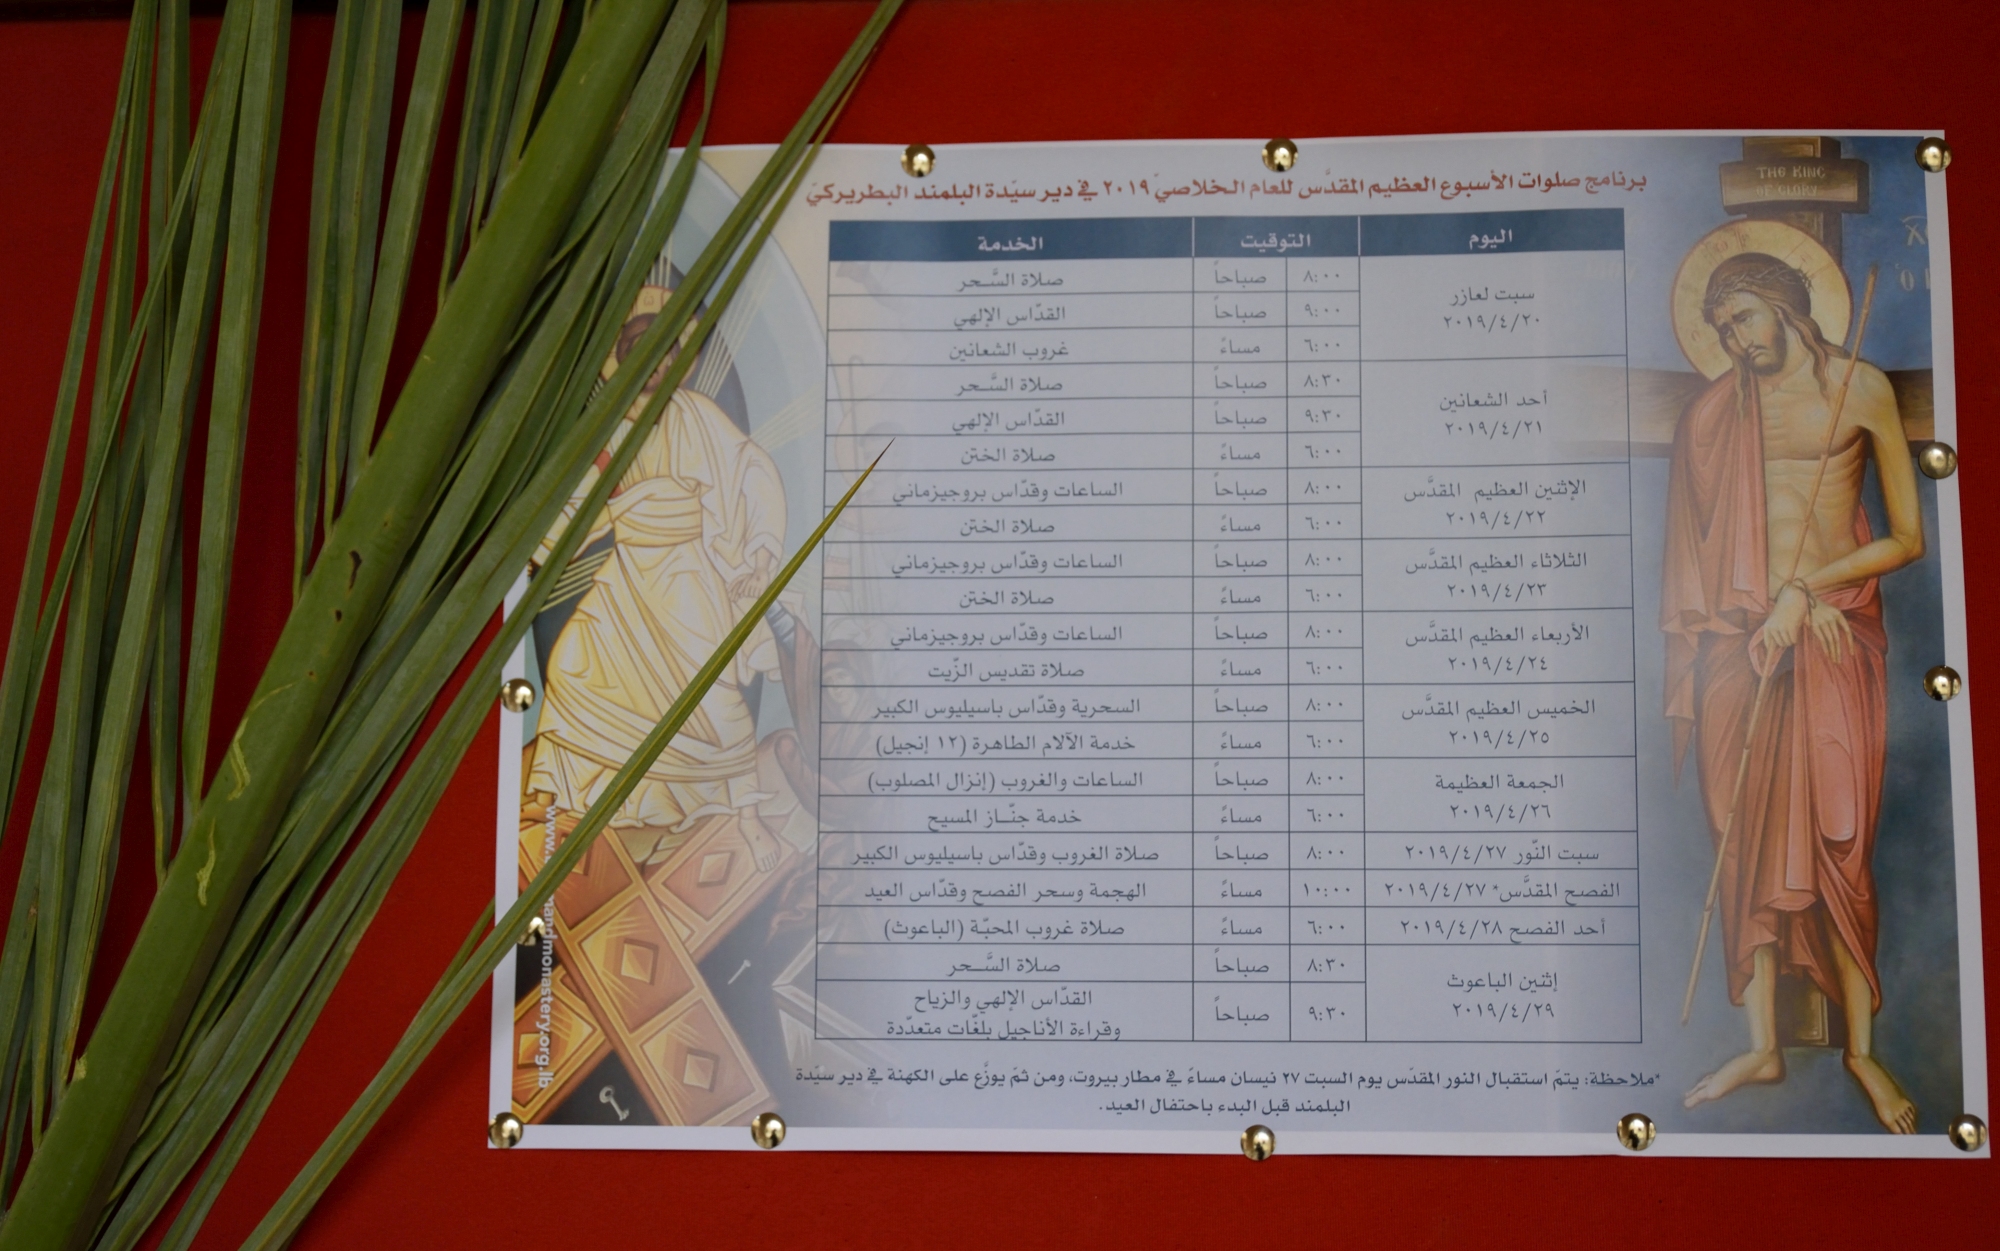 برنامج صلوات الأسبوع العظيم المقدَّس للعام الخلاصيّ ٢٠١٩ في دير سيّدة البلمند البطريركيّ
اليوم التوقيت الخدمة
سبت لعازر
٢٠١٩/٤/٢٠
٨:٠٠ صباحاً صلاة السَّحر
٩:٠٠ صباحاً القدّاس الإلهي
٦:٠٠ مساءً غروب الشعانين
أحد الشعانين
٢٠١٩/٤/٢١
٨:٣٠ صباحاً صلاة السَّحر
٩:٣٠ صباحاً القدّاس الإلهي
٦:٠٠ مساءً صلاة الختن
الإثنين العظيم المقدَّس
٢٠١٩/٤/٢٢
٨:٠٠ صباحاً الساعات وقدّاس بروجيزماني
٦:٠٠ مساءً صلاة الختن
الثلاثاء العظيم المقدَّس
٢٠١٩/٤/٢٣
٨:٠٠ صباحاً الساعات وقدّاس بروجيزماني
٦:٠٠ مساءً صلاة الختن
الأربعاء العظيم المقدَّس
٢٠١٩/٤/٢٤
٨:٠٠ صباحاً الساعات وقدّاس بروجيزماني
٦:٠٠ مساءً صلاة تقديس الزّيت
الخميس العظيم المقدَّس
٢٠١٩/٤/٢٥
٨:٠٠ صباحاً السحرية وقدّاس باسيليوس الكبير
٦:٠٠ مساءً خدمة الآلام الطاهرة (١٢ إنجيل)
الجمعة العظيمة
٢٠١٩/٤/٢٦
٨:٠٠ صباحاً الساعات والغروب (إنزال المصلوب)
٦:٠٠ مساءً خدمة جنّاز المسيح
سبت النّور ٢٠١٩/٤/٢٧ ٨:٠٠ صباحاً صلاة الغروب وقدّاس باسيليوس الكبير
الفصح المقدَّس* ٢٠١٩/٤/٢٧ ١٠:٠٠ مساءً الهجمة وسحر الفصح وقدّاس العيد
أحد الفصح ٢٠١٩/٤/٢٨ ٦:٠٠ مساءً صلاة غروب المحبّة (الباعوث)
إثنين الباعوث
٢٠١٩/٤/٢٩
٨:٣٠ صباحاً صلاة السَّحر
٩:٣٠ صباحاً القدّاس الإلهي والزياح
وقراءة الأناجيل بلغّات متعدّدة
*ملاحظة: يتمّ استقبال النور المقدّس يوم السبت ٢٧ نيسان مساءً في مطار بيروت، ومن ثمّ يوزَّع على الكهنة في دير سيّدة
البلمند قبل البدء باحتفال العيد.
THE KING
OF GLORY